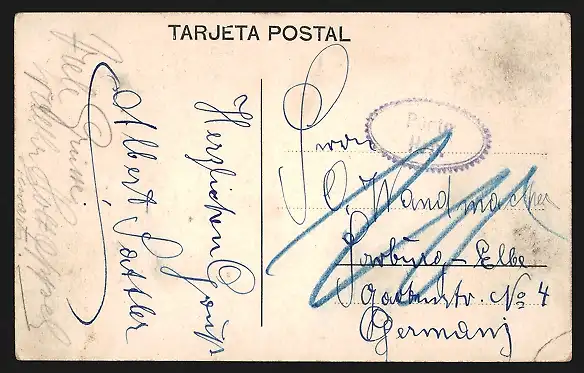 TARJETA POSTAL
Viele Grüsse
Herzlichen Gruß
Albert Sattler
Porto
O. Wandmacher
Harburg - Elbe
Gartenstr. No 4
Germany